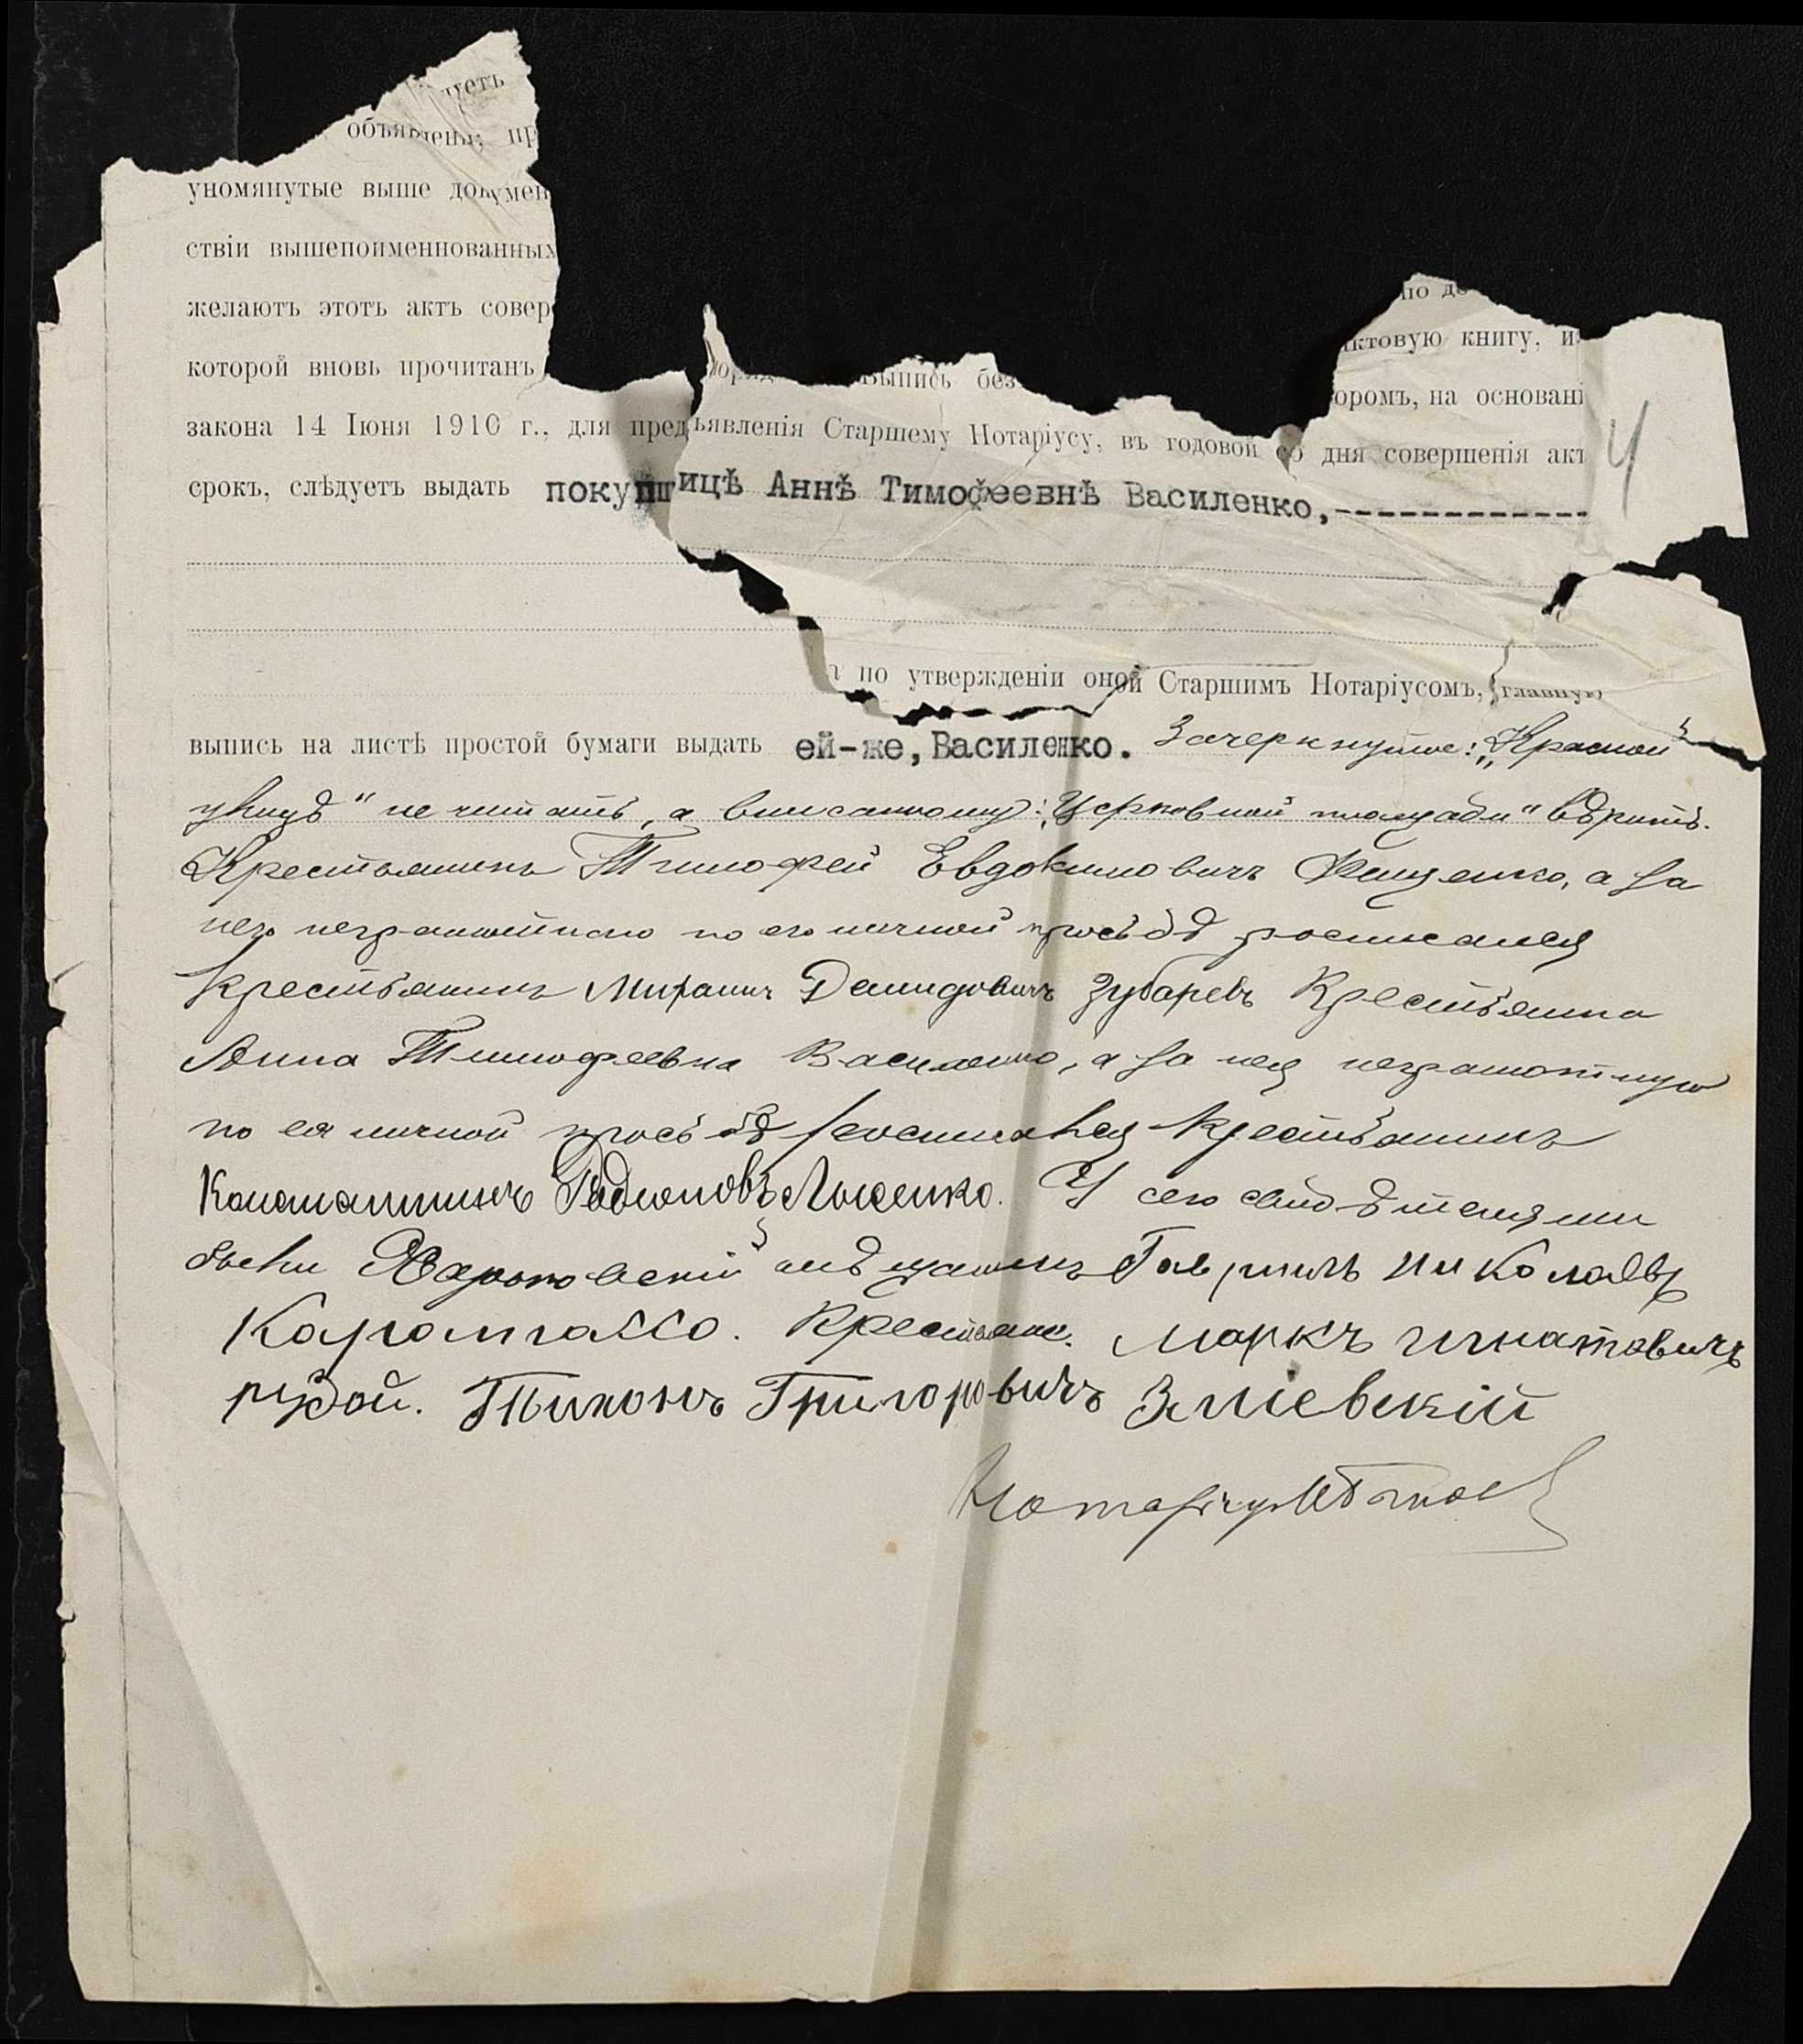 объявлены; пр
упомянутые выше докумен
ствіи вышепоименнованных
по до
желаютъ этотъ актъ совер
актовую книгу, из
которой вновь прочитанъ Выпись без
оромъ, на основані
закона 14 Іюня 1910 г., для предъявленія Старшему Нотаріусу, въ годовой со дня совершенія акт
4
срокъ, слѣдуетъ выдать покупщицѣ Аннѣ Тимофеевнѣ Василенко,-------------
по утвержденіи оной Старшимъ Нотаріусомъ, главную
выпись на листѣ простой бумаги выдать ей-же, Василенко. Зачеркнутое: „Красной
улицѣ" не читать, а вписанному: „Церковной площади" вѣрить.
Крестьянинъ Тимофей Евдокимовичъ Фещенко, а за
него неграмотнаго по его личной просьбѣ росписался
крестьянинъ Миранъ Демидовичъ Зубаревъ Крестьянка
Анна Тимофеевна Василенко, а за нея неграмотную
по ея личной просьбѣ росписался крестьянинъ
Константинъ Родіоновъ Лысенко. У сего свидѣтелями
были Харьковскій мѣщанинъ Гавріилъ Николаевъ
Крестьяне: Маркъ Игнатовичъ
рудой. Тихонъ Григоровичъ Зміевскій
Нотаріусъ